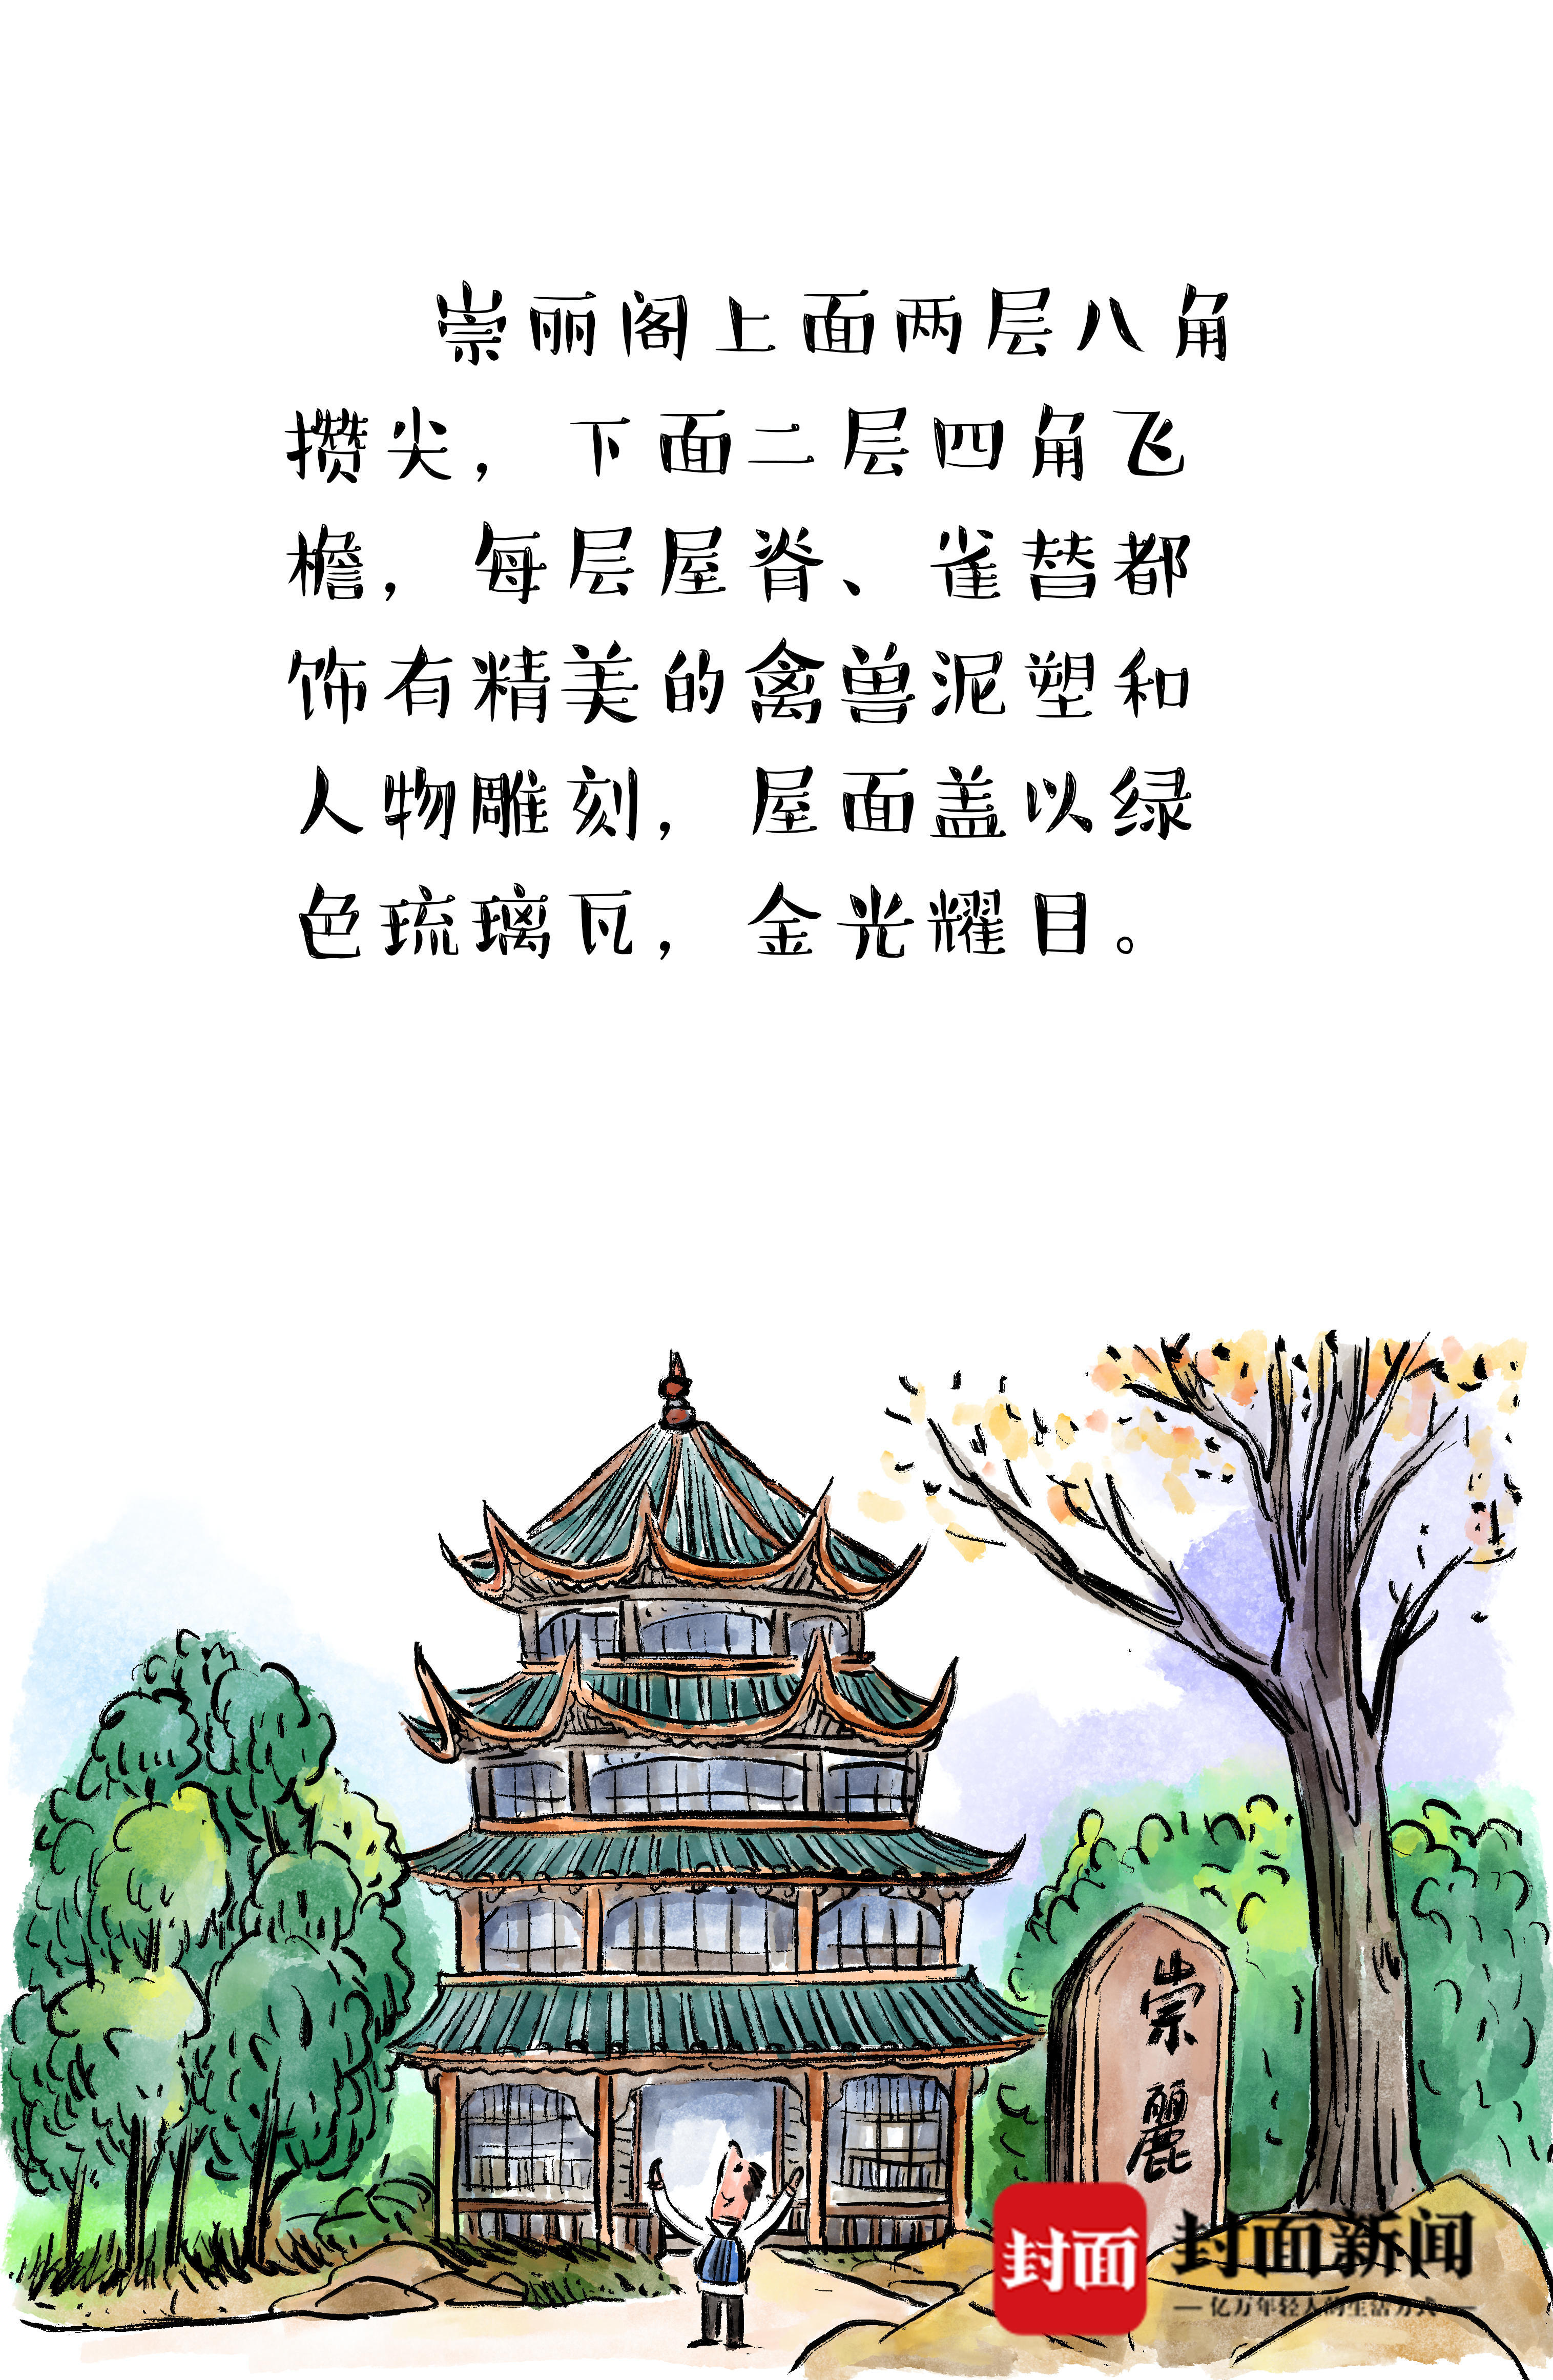 崇丽阁上面两层八角
攒尖，下面二层四角飞
檐，每层屋脊、雀替都
饰有精美的禽兽泥塑和
人物雕刻，屋面盖以绿
色琉璃瓦，金光耀目。
崇
麗
封面
封面新闻
亿万年轻人的生活方式